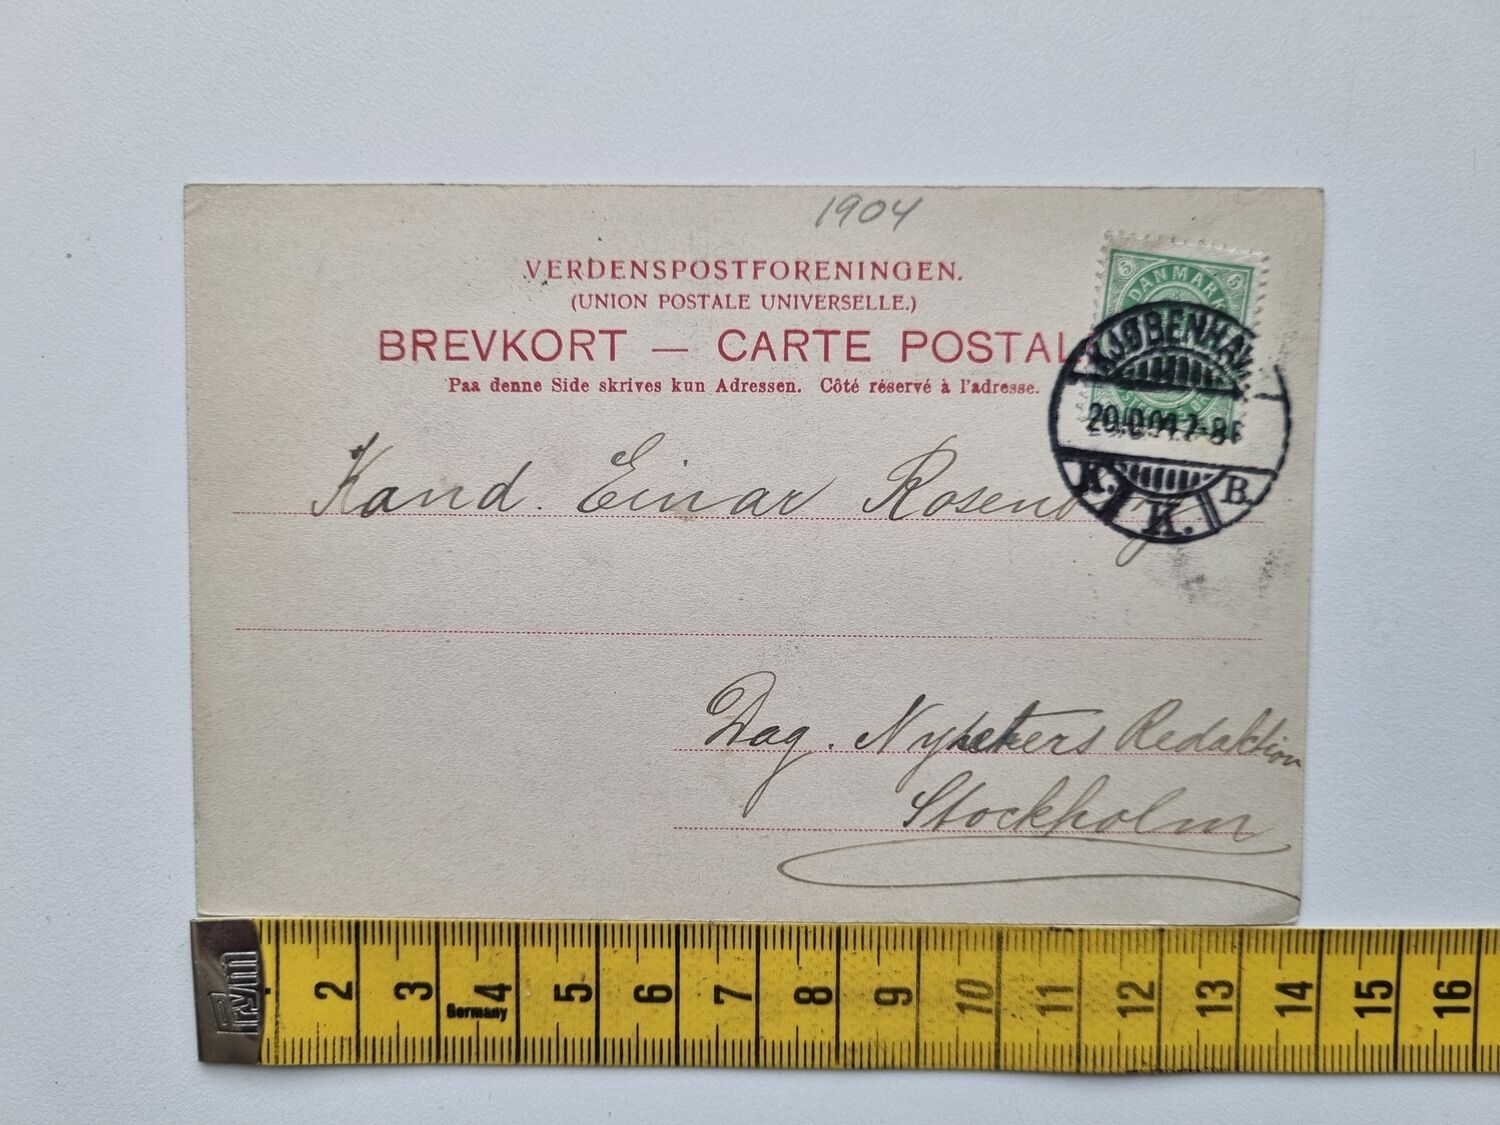 1904
VERDENSPOSTFORENINGEN.
(UNION POSTALE UNIVERSELLE.)
BREVKORT — CARTE POSTALE
Paa denne Side skrives kun Adressen. Côté réservé à l'adresse.
5 DANMARK 5
KJØBENHAVN.
K. K. B.
Kand. Einar Rosenberg
Dag. Nyheters Redaktion
Stockholm
Prym
2 3 4 5 6 7 8 9 10 11 12 13 14 15 16
Germany